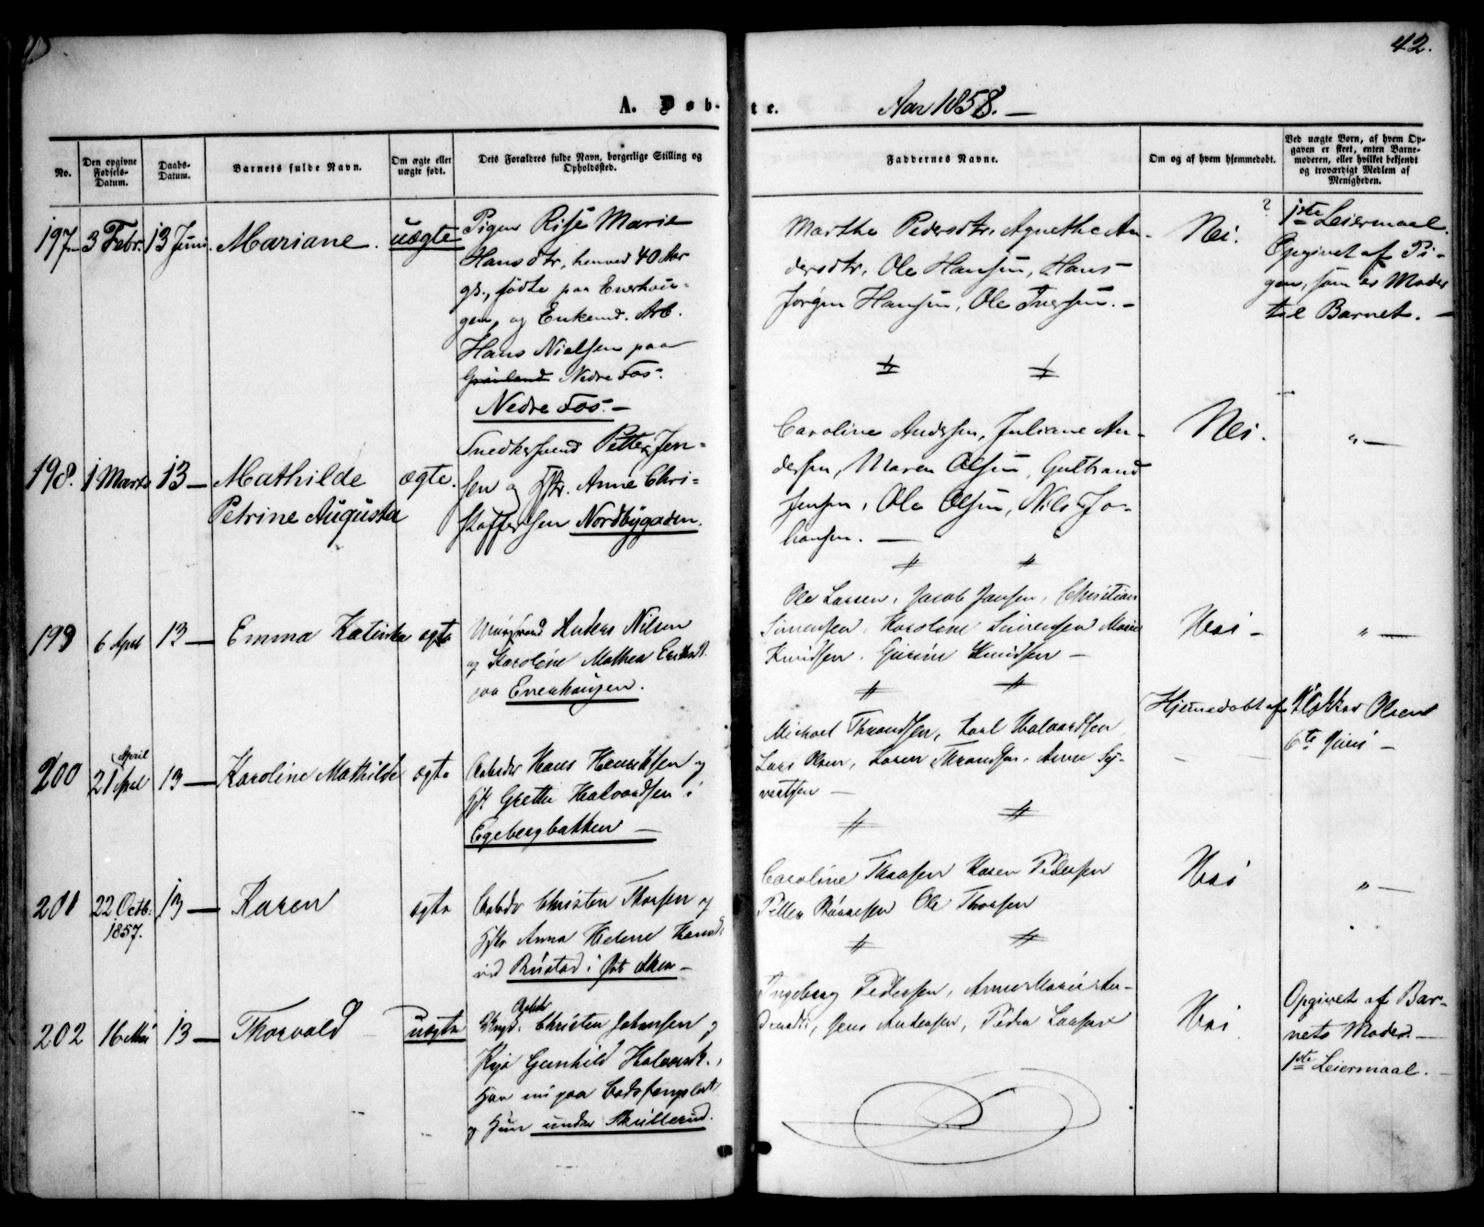 42.
A. Døb-te.
Aar 1858.
No.
Den opgivne Fødsels-Datum.
Daabs-Datum.
Barnets fulde Navn.
Om ægte eller uægte født.
Dets Forældres fulde Navn, borgerlige Stilling og Opholdssted.
Faddernes Navne.
Om og af hvem hjemmedøbt.
Ved uægte Børn, af hvem Opgaven er skeet, enten Barnemoderen, eller hvilket bekjendt og troværdigt Medlem af Menigheden.
197 3 Febr. 13 Juni Mariane. uægte
Pigen Rise Marie
Hansdtr., henved 40 Aar
gl., født paa Enerhou-
gen, og Enkemd. Arb.
Hans Nielsen paa
Grønland Nedre Fos.
Nedre Fos. —
Marthe Pedersdtr. Agnethe An-
dersdtr, Ole Hansen, Hans
Jørgen Hansen, Ole Iversen. —
Nei.
?
1ste Leiermaal.
Opgivet af Pi-
gen, som er Moder
til Barnet. —
198. 1 Marts 13 — Mathilde
Petrine Augusta
ægte.
Snedkersvend Petter Jen-
sen og Hstr. Anne Chri-
stoffersen Nordbygaden.
Caroline Andersen, Juliane An-
dersen, Maren Olsen, Gulbrand
Jensen, Ole Olsen, Nils Jo-
hansen. —
Nei.
" —
199 6 April 13 — Emma Katinka ægte
Murersvend Anders Nilsen
og Karoline Mathea
paa Enerhaugen.
Ole Larsen, Jacob Jansen, Christian
Sørensen, Karoline Sørensen Marie
Knudsen, Gurine Knudsen —
Nei —
" —
200 21 April 13 — Karoline Mathilde ægte
April
Arbeider Hans Henriksen og
Hst Grethe Halvordsen i
Egebergbakken —
Michael Thrandsen, Karl Halvordsen
Lars Olsen, Karen Thrandsen, Anne Sy-
vertsen —
Hjemmedøbt af Klokker Olsen
6te Juni —
201 22 Octb. 13 — Karen ægte
1857.
Arbeider Christen Thorsen og
Hst Anna Helene Hansd.
ved Rustad i Østre Aker —
Caroline Thorsen Karen Pedersen
Petter Ole Thorsen
Nei
" —
202 16 Mai 13 — Thorvald uægte
Arbeider
Ungk. Christen Johansen og
Pige Gunhild Halvorsd.,
Han nu paa Bodsfængslet
og Hun under Skullerud.
Ingeborg Pedersen, Anne Marie An-
dersdtr, Jens Andersen, Peder Larsen
Nei
Opgivet af Bar-
nets Moder. —
1ste Leiermaal. —